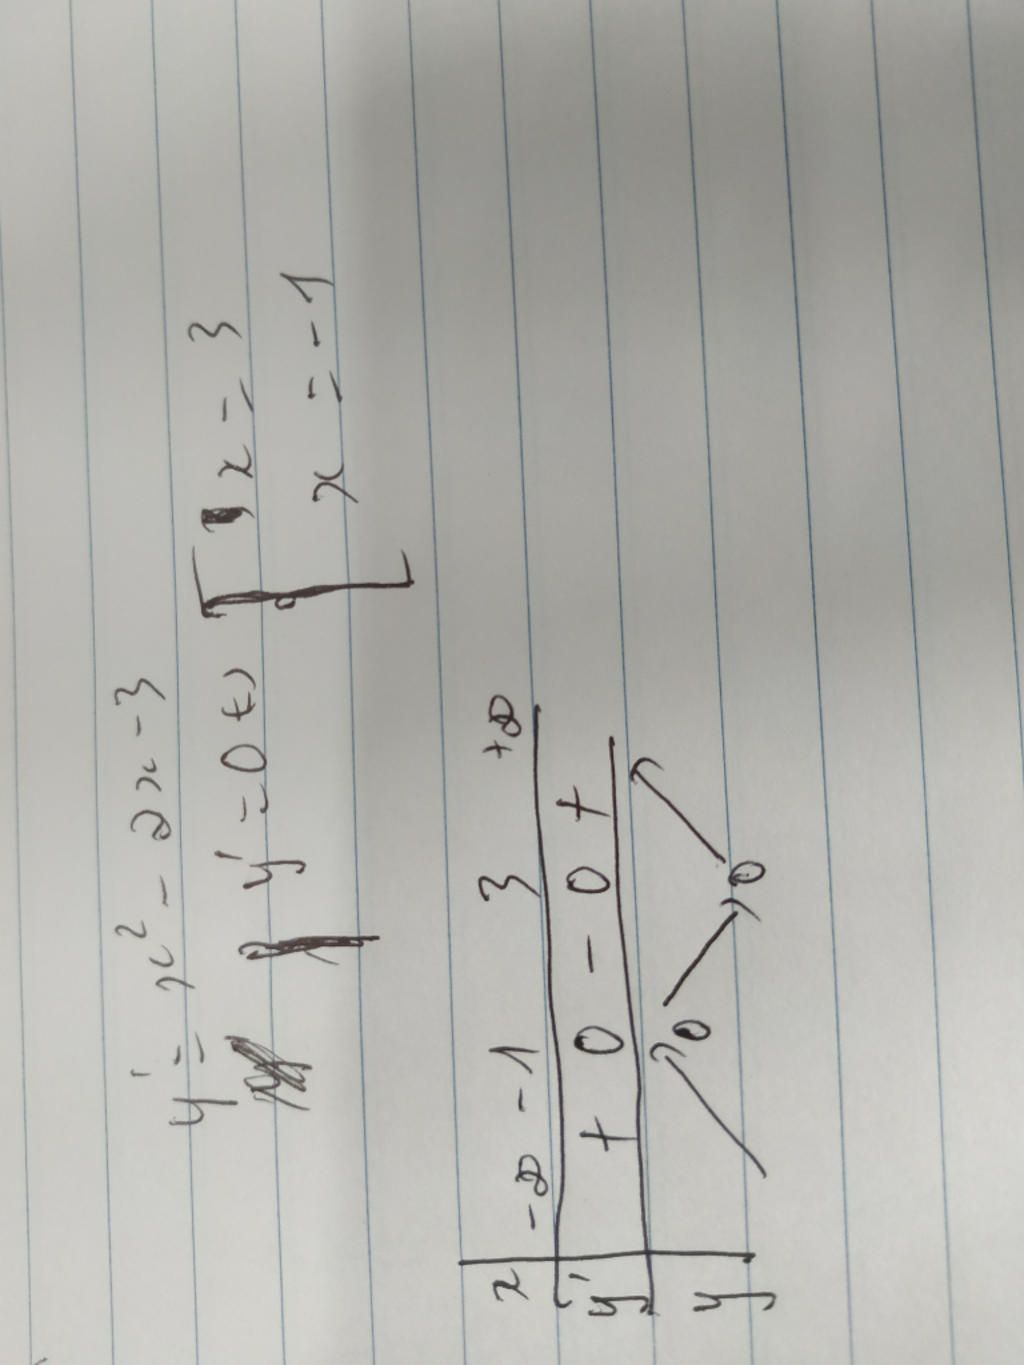 y' = x² - 2x - 3
y' = 0 (=) [ x = 3
x = -1
x -∞ -1 3 +∞
y' + 0 - 0 +
y 0 0